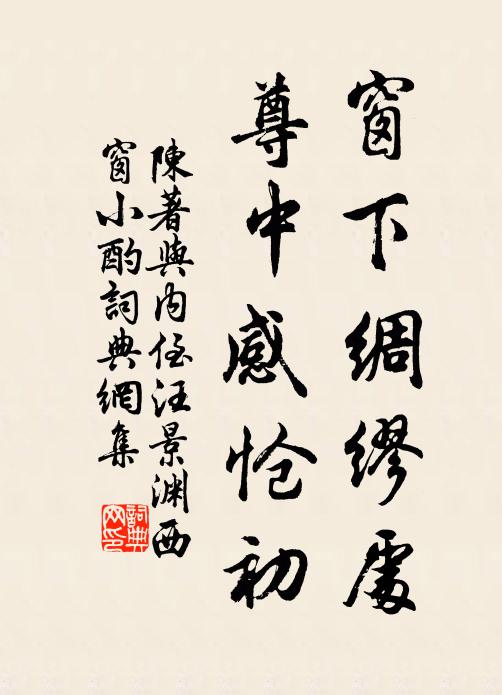 窗下綢繆處
尊中感怆初
陳著與内侄汪景渊西
窗小酌詞典網集
詞典
网印